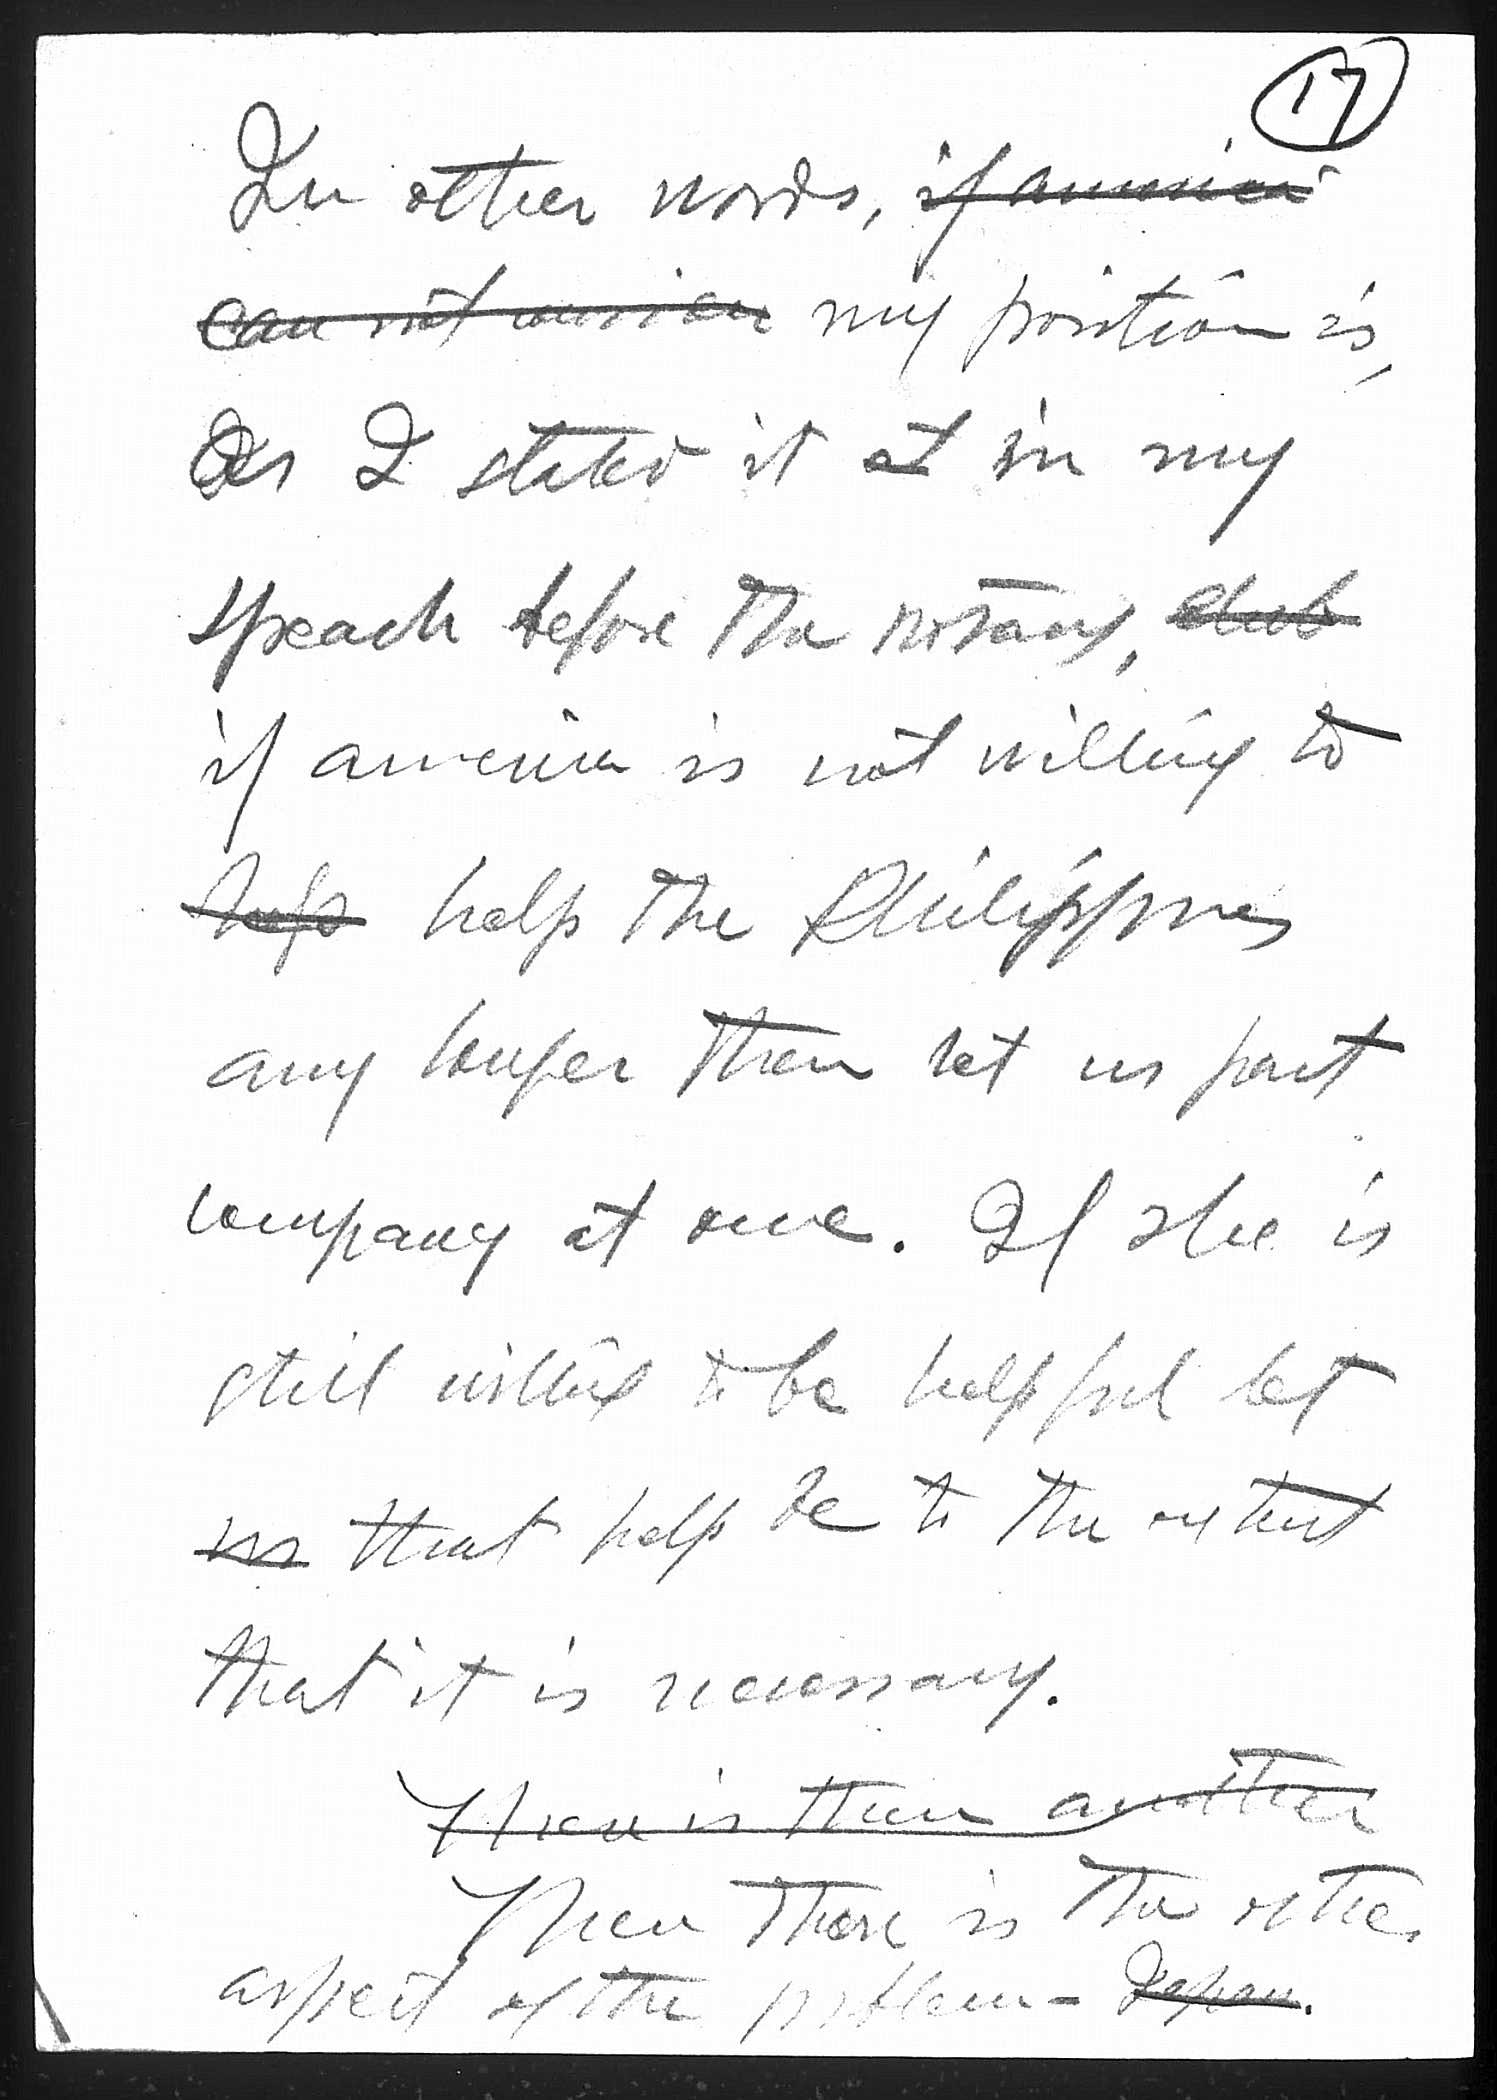 17
In other words, if america
can not remain my position is,
As I stated it at in my
speach before the rotary, club
if america is not willing to
help help the Philippines
any longer then let us part
company at once. If she is
still willing to be helpful let
us that help be to the extent
that it is necessary.
Then is then another
Then there is the other
aspect of the problem - Japan.